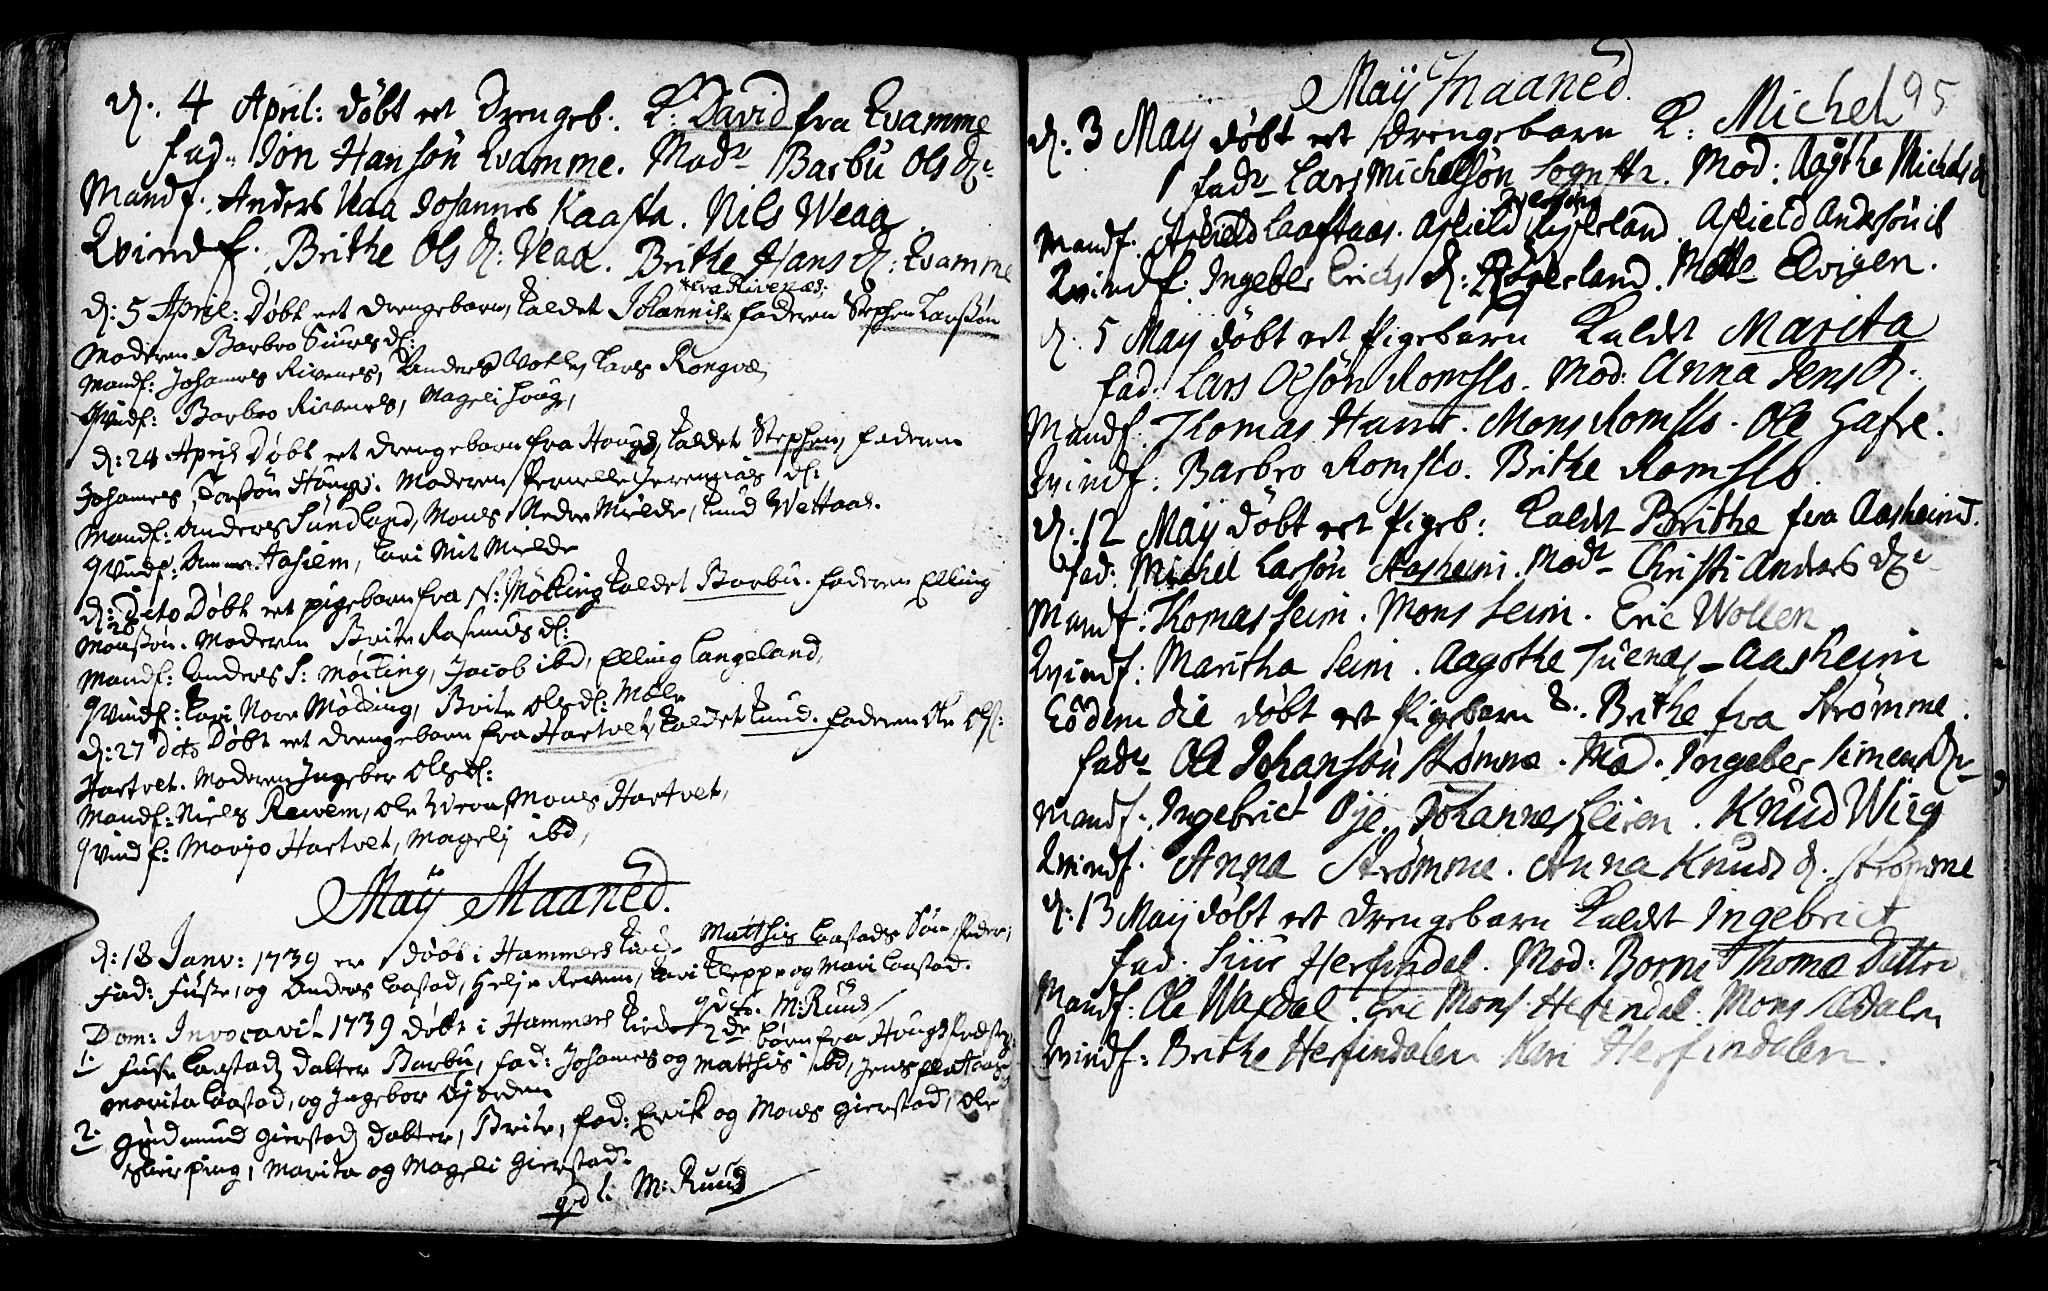 d. 4 April: døbt et Drengeb. K: David fra Qvamme
fad. Jon Hansøn Qvamme. Modr Barbu Ols Dr
Mandf. Anders Veaa Johannes Kaasta. Nils Weaa
Qvindf. Brithe Ols d: Veaa. Brithe Hans d: Qvamme
fra Rivenæs;
d: 5 April: Døbt et drengebarn, kaldet Johannis, faderen Stephen Larssøn
Moderen Barbro Siurs d:
Mandf: Johannes Rivenes, Anders Votle, Lars Rongve,
Qvindf: Barbro Rivenes, Mageli Houge,
d: 24 April Døbt et drengebarn fra Hougs, kaldet Stephen, faderen
Johannes Larssøn Hougs. Moderen Pernelle Jeremias d:
Mandf: Anders Sundland, Mons Nedre Mielde, Knud Wettaas.
Qvindf: Anna Aasiem, Kari Mit Mielde
d: dito Døbt et pigebarn fra N: Møcking kaldet Barbu. faderen Elling
26
Monssøn. Moderen Brite Rasmus d:
Mandf: Anders S: Møcking, Jacob ibd, Elling Langeland,
Qvindf: Kari Norr Møcking, Brite Ols d: Mæle
d: 27 dito Døbt et drengebarn fra Hartvet, kaldet Knud. faderen Ole Ols:
Hartvet. Moderen Ingeber Ols d:
Mandf: Niels Reviem, Ole Mons Hartvet,
Qvindf: Marjo Hartvet, Magelj ibd,
May Maaned.
d: 18 Janv: 1739 er døbt i Hammers Kirke Matthis Laastads Søn, Peder,
Fad: Fuse, og Anders Laastad, Helje Reviem, Kari Kleppe og Mari Laastad.
qd t. M: Ruud
Dom: Invocavit 1739 døbt i Hammers Kirke 2de børn fra Hougs Præsteg:
1. Fuse Laastads datter Barbu, fad: Johannes og Matthis ibd, Jens
Marita Laastad, og Ingebor Øjorden
2. Gudmund Gierstads datter, Brite, fad: Erik og Mons Gierstad, Ole
Skieping, Marita og Mageli Gierstad.
qd t: M: Ruud
95
May Maaned.
d: 3 May døbt et drengebarn K: Michel
fadr Lars Michelsøn Sognstr. Mod: Aagthe Michels d
Mandf. Askield Laastaas. Askield Røserland. Askield Andersøn ib
Qvindf. Ingeber Erichs d: Røserland. Mette Elvigen.
d. 5 May døbt et Pigebarn Kaldet Marita
fad: Lars Olsøn Romslo. Mod: Anna Jens d.
Mandf: Thomas Hanne. Mons Romslo. Ole Gafre.
Qvindf: Barbro Romslo. Brithe Romslo.
d: 12 May døbt et Pigeb: Kaldet Brithe fra Aasheim.
fad: Michel Larsøn Aasheim. Modr Christi Anders dr
Mandf: Thomas Seim. Mons Seim. Eric Wollen
Qvindf: Maritha Seim. Aagothe Tuenæs Aasheim
Eodem die døbt et Pigebarn K. Brithe fra Strømme.
fadr Ole Johansøn Strømme. Mod. Ingeber Simens dr
Mandf. Ingebrict Øye. Johannes Eliren. Knud Wiig
Qvindf. Anna Strømme. Anna Knuds d. Strømme
d: 13 May døbt et drengebarn Kaldet Ingebrict
fad. Siur Herfindal. Mod: Borni Thomæ Datter
Mandf: Ole Waxdal. Eric Mons. Herfindal. Mons Aldalen
Qvindf: Brithe Herfindalen Kari Herfindalen.